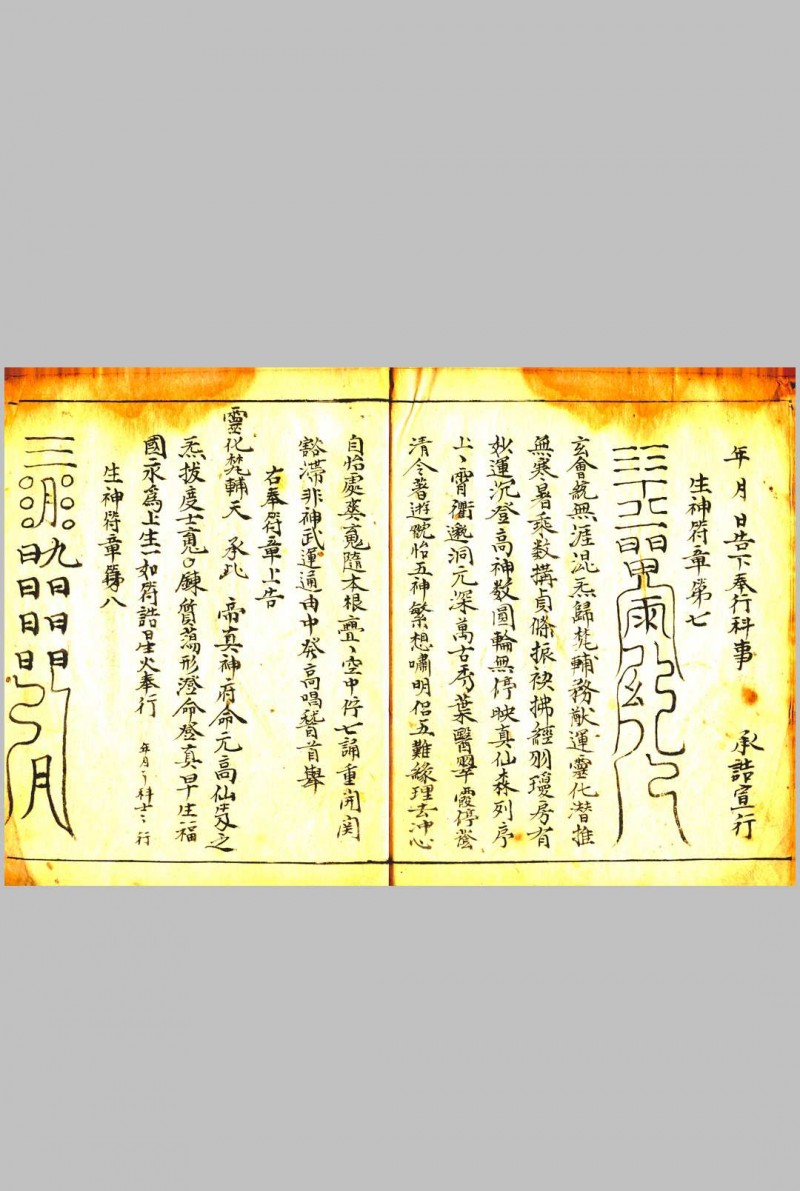 年月 日告下奉行科事 承誥宣行
生神符章第七
玄會統無涯混炁歸梵輔務猷運靈化潛推
無寒暑乘数搆貞條振袂拂輕羽瓊房有
妙運沉登高神数圓輪無停映真仙森列序
上〻霄衢邈洞元深萬古秀葉翳翠霞停蔭
清令著遊觀怡五神繁想嘯明侶五難緣理去冲心
自怡處爽䰟隨本根亹〻空中停七誦重開関
豁滯非神武運通由中發高唱稽首舉
右奉符章上告
靈化梵輔天 承此 帝真神府命元高仙度之
炁拔度亡䰟 鍊質蕩形澄命登真早生福
國永為上生一如符誥星火奉行 年月 日科〻行
生神符章第八